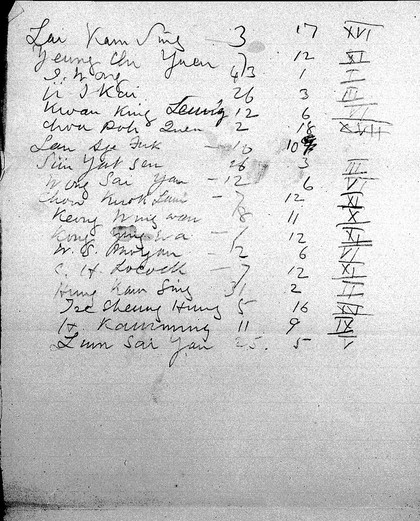 Lau Kam Sing - 3 17 XVI
Yeung Chu Yuen 7 12 XI
S. Wong 43 1 I
U I Kai 26 3 III
Kwan King Leung 12 6 VI
Chou Poh Quen - 2 18 XVII
Lau Sze Fuk - 10 10
Sun Yat Sen 26 3 III
Wong Sai Yan - 12 6 VI
Chou Kwok Lam - 7 12 XI
Keong Wing wan 8 11 X
Kong Ying Wa - 7 12 XI
W. S. - 2 6 VI
C. H. Pocock - 7 12 XI
Hung Kam Sing 31 2 II
Tse Cheung Hung 5 16 XV
H. Kamming 11 9 IX
Lum Sai Yan 25. 5 V